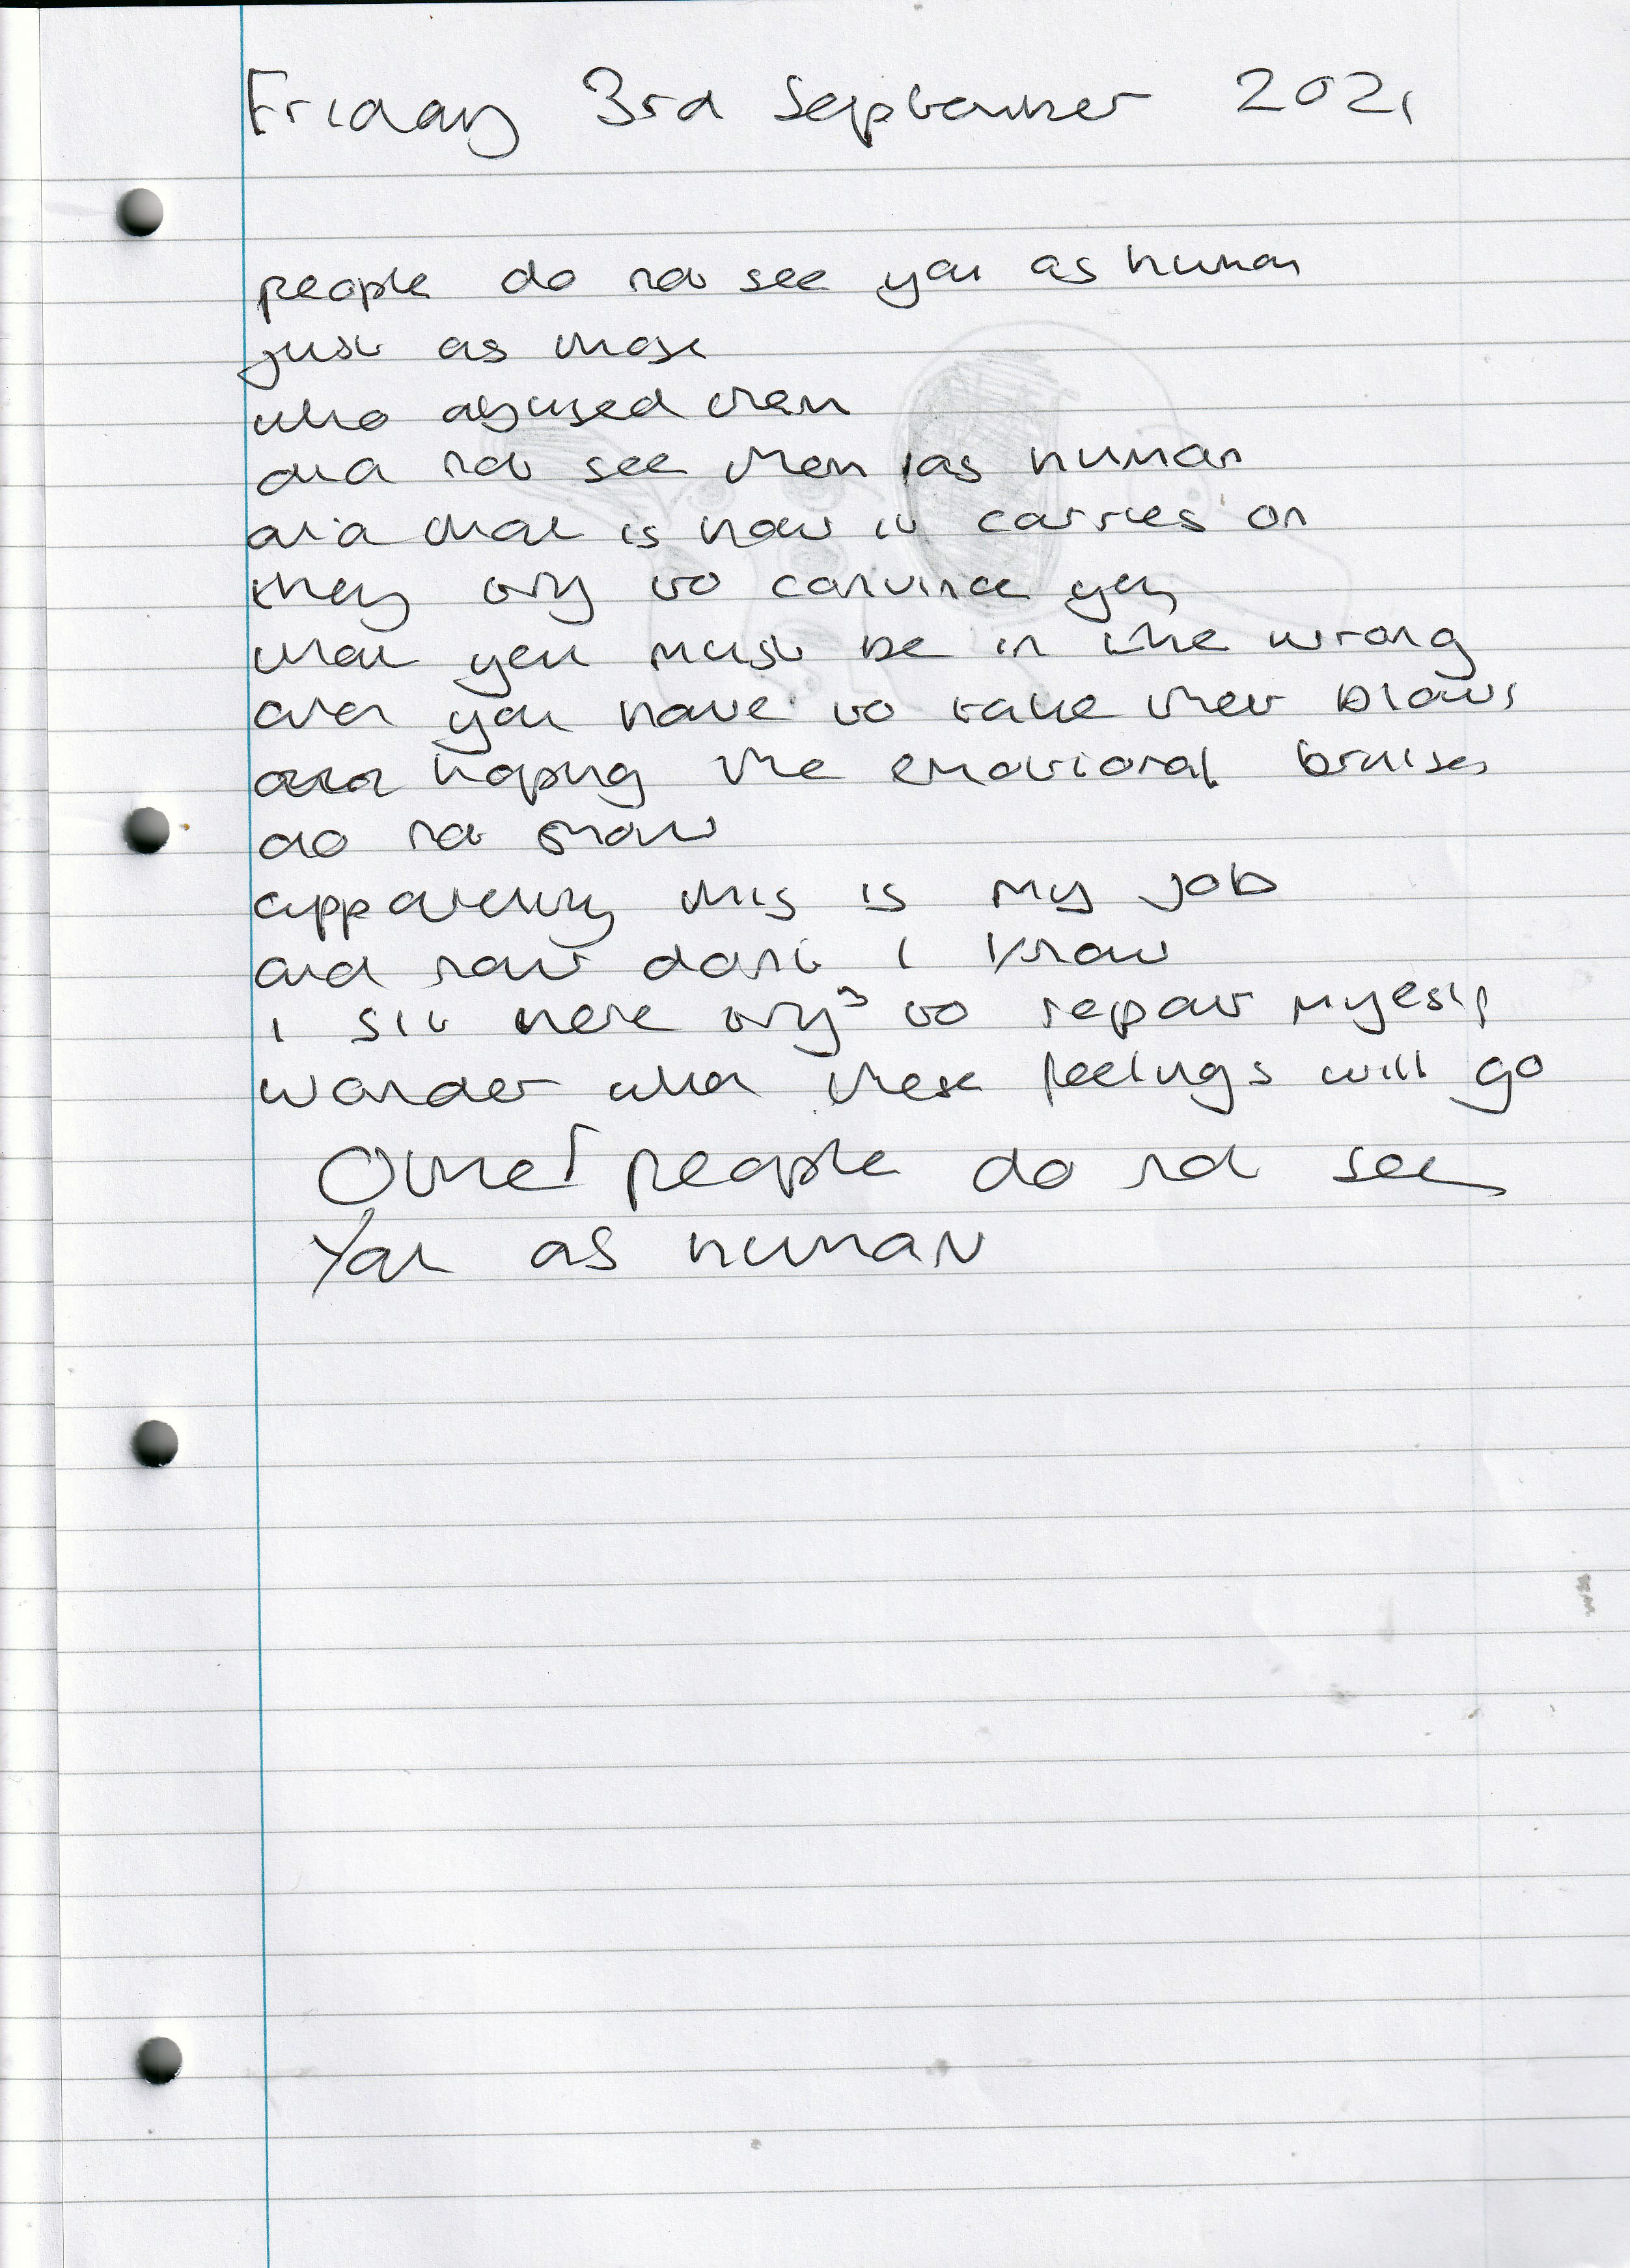 Friday 3rd September 2021
people do not see you as human
just as those
who abused them
did not see them as human
and that is how it carries on
they try to convince you
that you must be in the wrong
and you have to take their blows
hoping the emotional bruises
do not show
apparently this is my job
and now don't I know
I sit here trying to repair myself
wonder when these feelings will go
Other people do not see
you as human